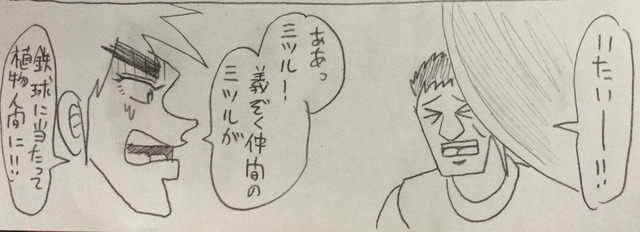 いたいー!!
ああっ
ミツルー!
義ぞく仲間の
ミツルが
鉄球に当たって
植物人間に!!